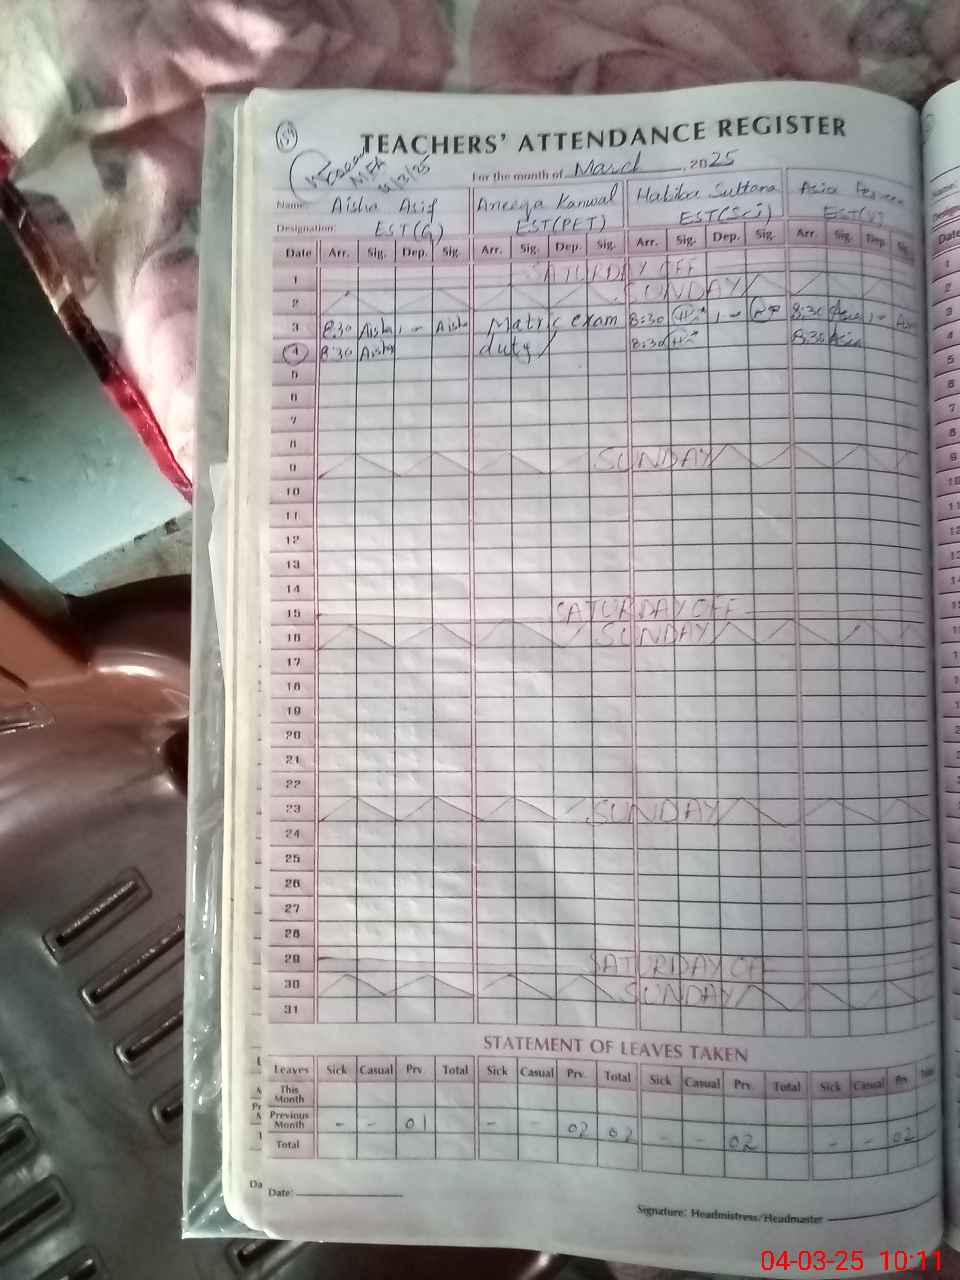 154
TEACHERS' ATTENDANCE REGISTER
MEA
4/3/25
For the month of March, 2025
Name: Aisha Asif Aneeqa Kanwal Habiba Sultana Asia
Designation: EST(G) EST(PET) EST(Sci)
Date Arr. Sig. Dep. Sig. Arr. Sig. Dep. Sig. Arr. Sig. Dep. Sig. Arr. Sig. Dep Sig.
1 SATURDAY OFF
2 SUNDAY
3 8:30 Aisha 1 - Aisha Matric exam 8:30 1 - 8:30 Asia 1 -
4 8:30 Aisha duty 8:30 8:30 Asia
5
6
7
8
9 SUNDAY
10
11
12
13
14
15 SATURDAY OFF
16 SUNDAY
17
18
19
20
21
22
23 SUNDAY
24
25
26
27
28
29 SATURDAY OFF
30 SUNDAY
31
STATEMENT OF LEAVES TAKEN
Leaves Sick Casual Prv. Total Sick Casual Prv. Total Sick Casual Prv. Total Sick Casual Prv Total
This Month
Previous Month - - 01 - - 02 02 - - 02 - - 02
Total
Date:
Signature: Headmistress/Headmaster
04-03-25 10:11